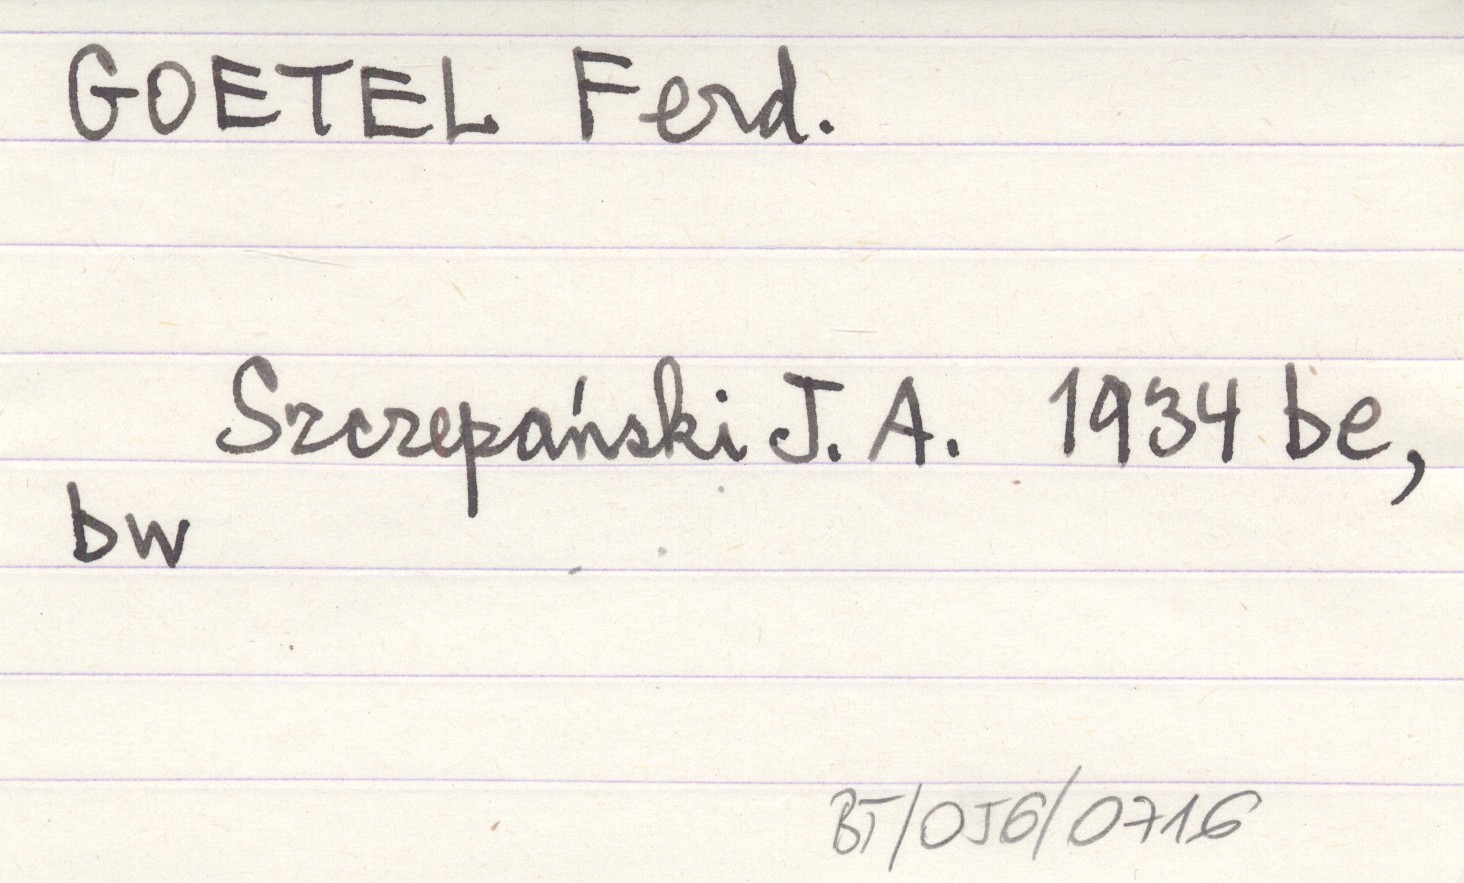 GOETEL Ferd.
Szczepański J. A. 1934 be,
bw
BT/OJG/0716